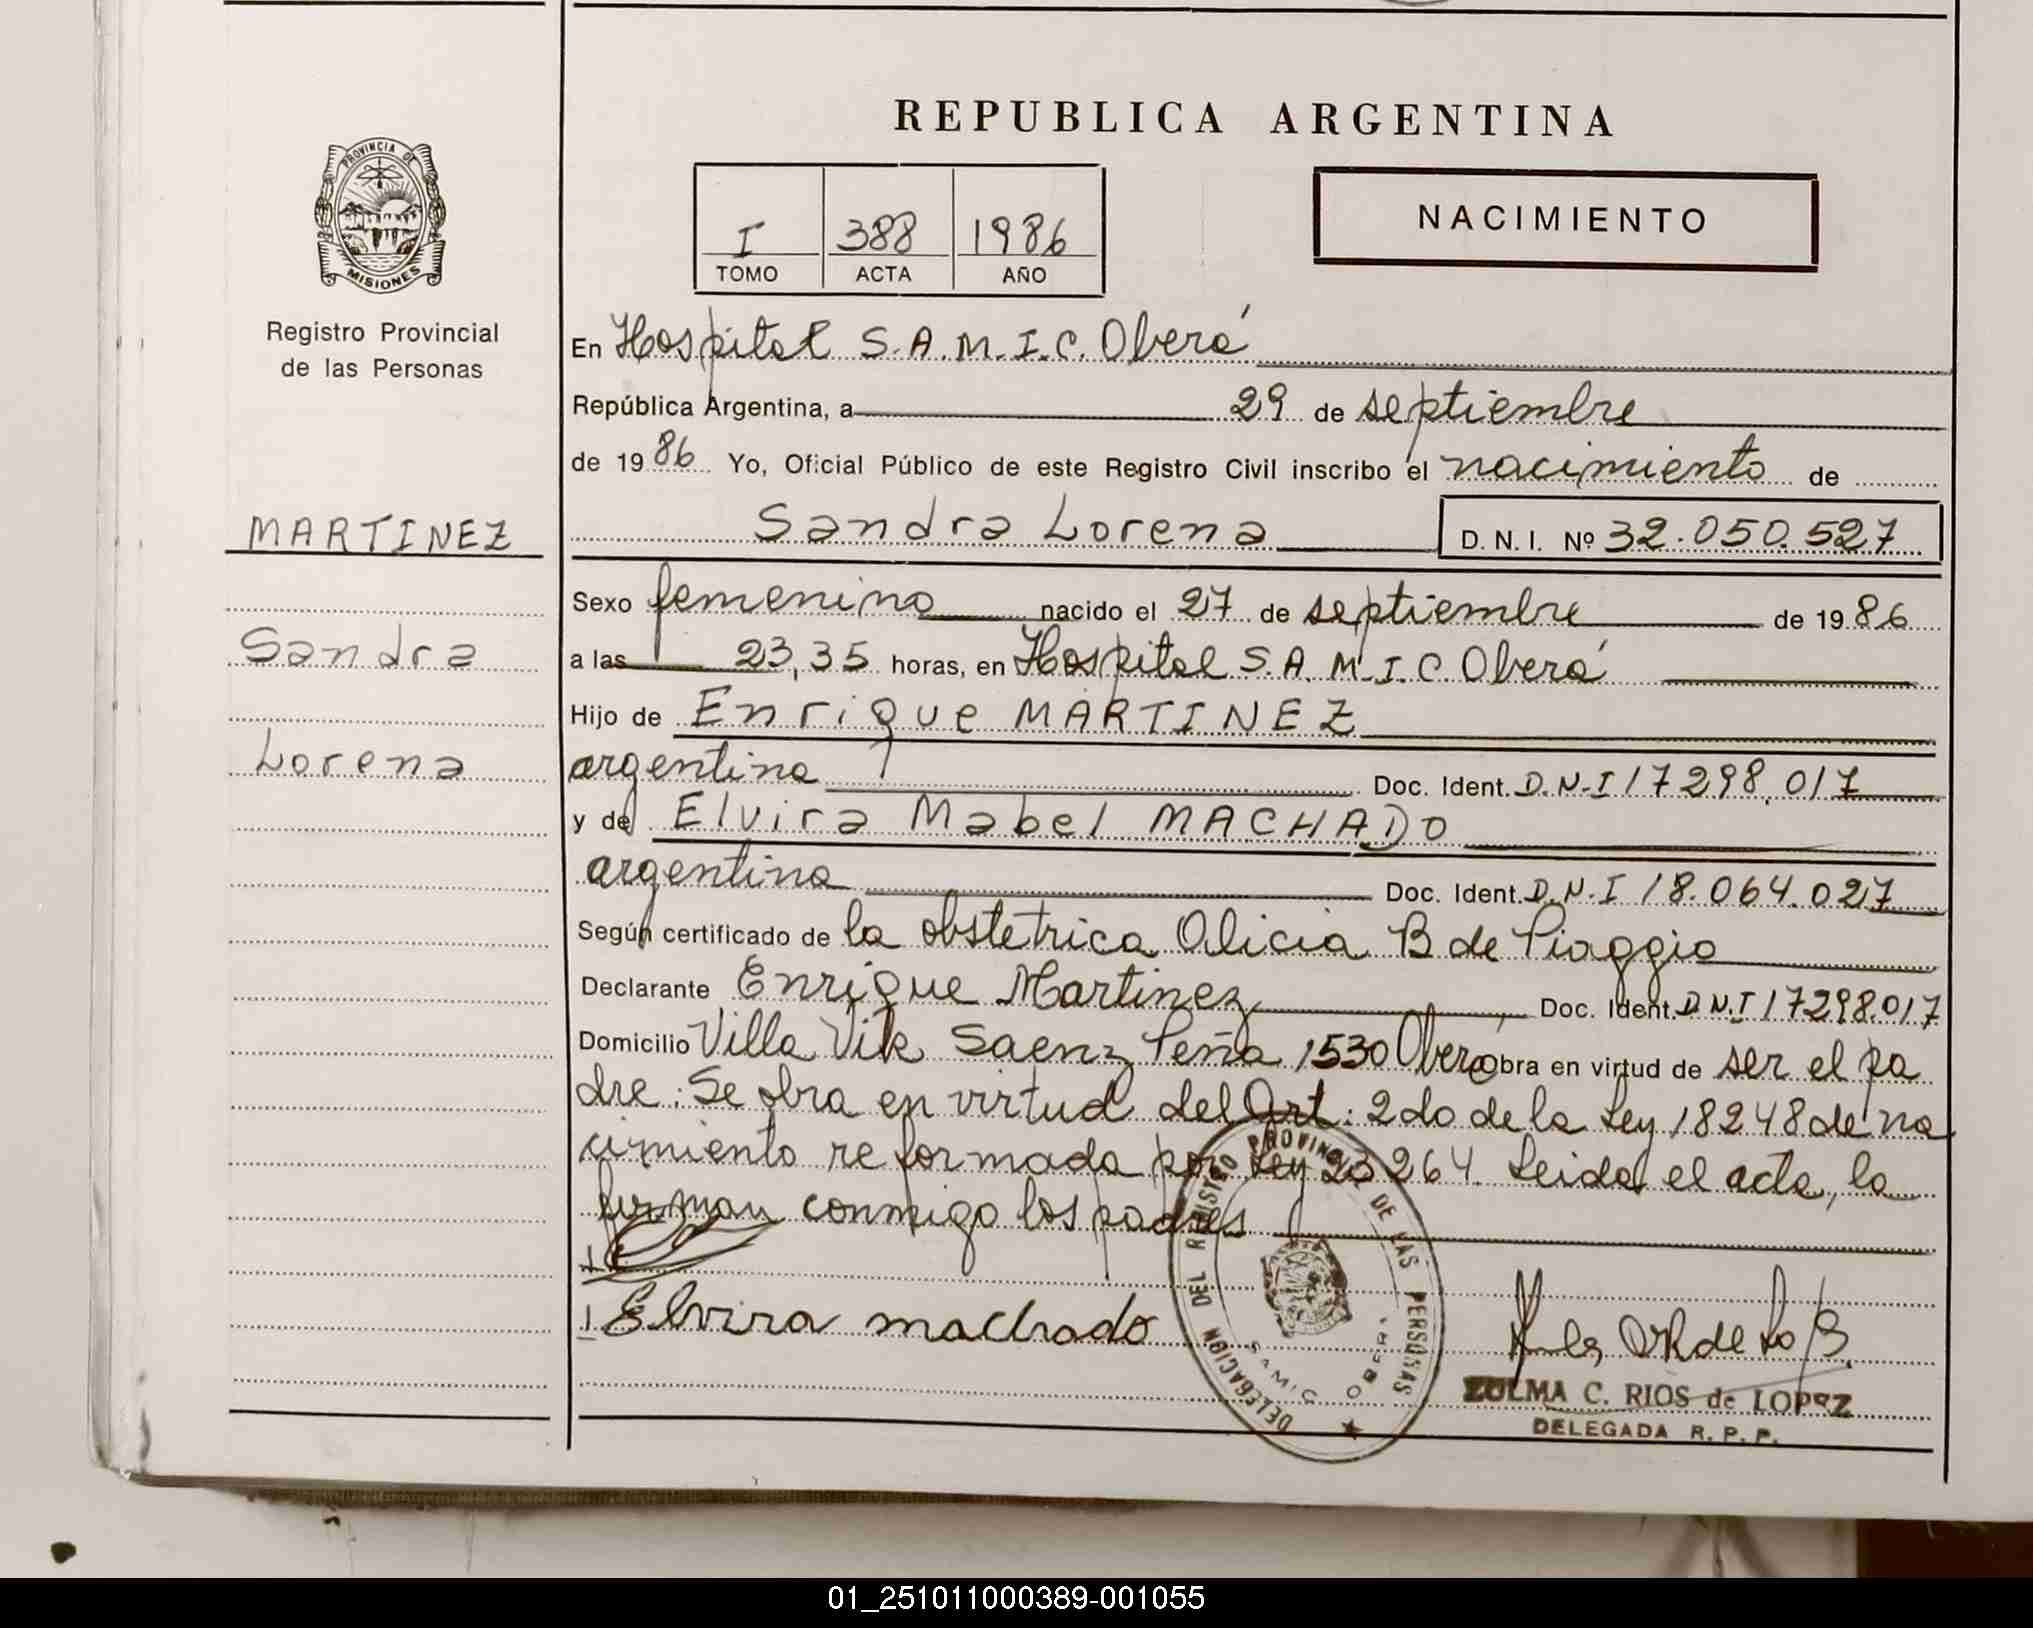 REPUBLICA ARGENTINA
PROVINCIA DE
MISIONES
Registro Provincial
de las Personas
MARTINEZ
Sandra
Lorena
I 388 1986
TOMO ACTA AÑO
NACIMIENTO
En Hospital S.A.M.I.C. Oberá
República Argentina, a 29 de septiembre
de 1986 Yo, Oficial Público de este Registro Civil inscribo el nacimiento de
Sandra Lorena D.N.I. Nº 32.050.527
Sexo femenino nacido el 27 de septiembre de 1986
a las 23,35 horas, en Hospital S.A.M.I.C Oberá
Hijo de Enrique MARTINEZ
argentino Doc. Ident. D.N.I 17298.017
y de Elvira Mabel MACHADO
argentina Doc. Ident. D.N.I 18.064.027
Según certificado de la obstetrica Alicia B de Piaggio
Declarante Enrique Martinez Doc. Ident. D.N.I 17298.017
Domicilio Villa Vik Saenz Peña 1530 Oberá obra en virtud de ser el pa
dre: Se obra en virtud del Art: 2do de la Ley 18248 de na
cimiento reformada por Ley 23264. Leida el acta, la
firman conmigo los padres
Elvira machado
DELEGACION DEL REGISTRO PROVINCIAL DE LAS PERSONAS
SAMIC OBERA
ZULMA C. RIOS de LOPEZ
DELEGADA R. P. P.
01_251011000389-001055